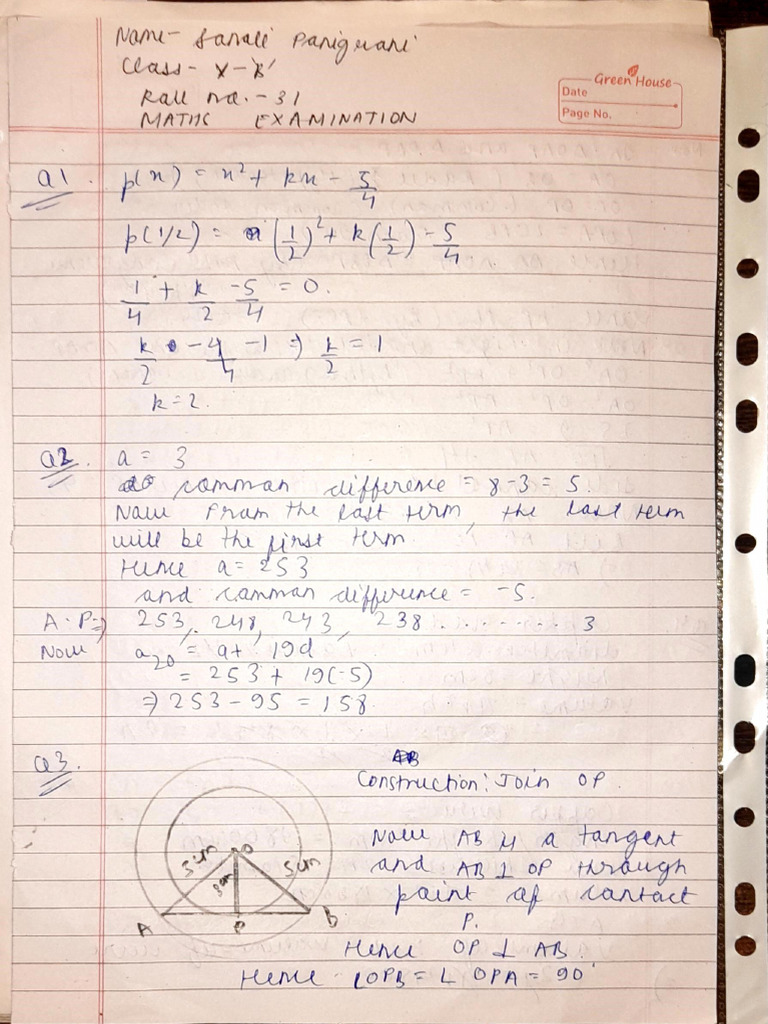 Name- Sonali Panigrahi
Class- X-B'
Roll no.- 31
MATHS EXAMINATION
Green House
Date
Page No.
Q1. p(x) = x² + kx - 5/4
p(1/2) = (1/2)² + k(1/2) - 5/4
1/4 + k/2 - 5/4 = 0.
k/2 - 4/4 - 1 ⇒ k/2 = 1
k = 2.
Q2. a = 3
common difference = 8-3 = 5.
Now from the last term, the last term
will be the first term.
Hence a = 253
and common difference = -5.
A.P ⇒ 253, 248, 243, 238 .......... 3
Now a₂₀ = a + 19d
= 253 + 19(-5)
⇒ 253 - 95 = 158.
Q3.
Construction: Join OP.
Now AB is a tangent
and AB ⊥ OP through
point of contact
P.
Hence OP ⊥ AB.
Hence ∠OPB = ∠OPA = 90°
5cm
O
5cm
3cm
A
P
B